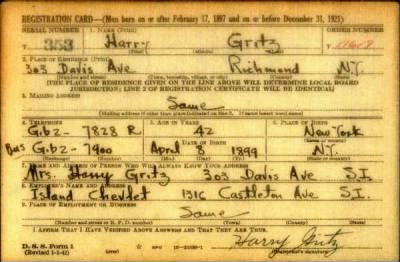 REGISTRATION CARD—(Men born on or after February 17, 1897 and on or before December 31, 1921)
SERIAL NUMBER 1. NAME (Print) ORDER NUMBER
353 Harry Gritz
(First) (Middle) (Last)
2. PLACE OF RESIDENCE (Print)
303 Davis Ave Richmond N.Y.
(Number and street) (Town, township, village, or city) (County) (State)
[THE PLACE OF RESIDENCE GIVEN ON THE LINE ABOVE WILL DETERMINE LOCAL BOARD
JURISDICTION; LINE 2 OF REGISTRATION CERTIFICATE WILL BE IDENTICAL]
3. MAILING ADDRESS
Same
[Mailing address if other than place indicated on line 2. If same insert word same]
4. TELEPHONE 5. AGE IN YEARS 6. PLACE OF BIRTH
Gib 2- 7828 R 42 New York
DATE OF BIRTH
Bus Gib 2- 7900 April 8 1899 N.Y.
7. NAME AND ADDRESS OF PERSON WHO WILL ALWAYS KNOW YOUR ADDRESS
Mrs. Harry Gritz 303 Davis Ave S.I.
8. EMPLOYER'S NAME AND ADDRESS
Island Chevlet 1316 Castleton Ave S.I.
9. PLACE OF EMPLOYMENT OR BUSINESS
Same
(Number and street or R. F. D. number) (Town) (County) (State)
I AFFIRM THAT I HAVE VERIFIED ABOVE ANSWERS AND THAT THEY ARE TRUE.
D. S. S. Form 1
(Revised 1-1-42) Harry Gritz
(Registrant's signature)